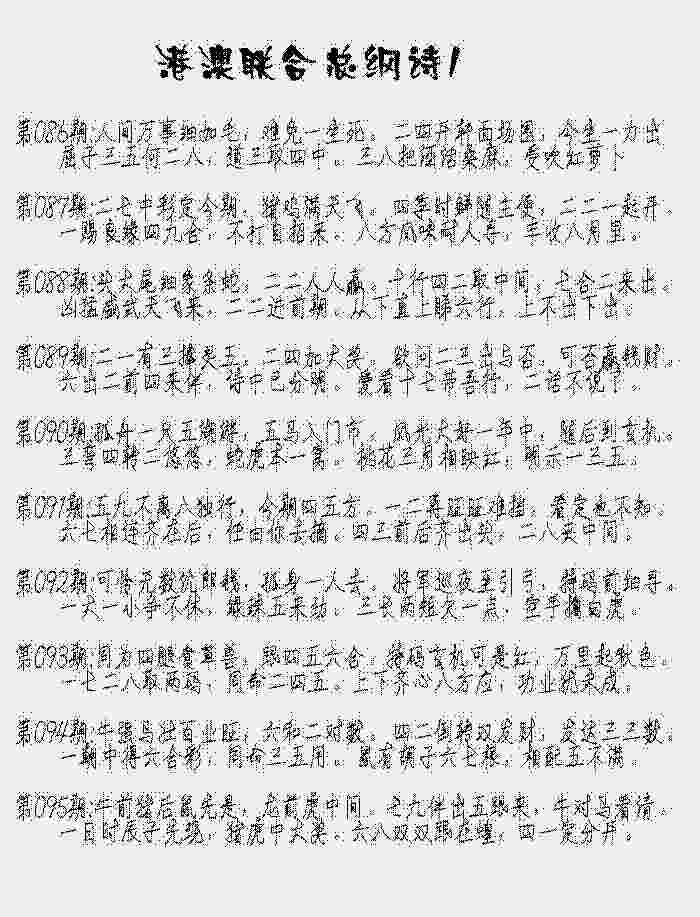 港澳联合总纲诗1
第086期:人间万事细如毛，难免一生死。二四开转面场围，今生一力出
屈子三五何二八，道三取四中。三八把酒话桑麻，爱吹红萝卜
第087期:二七中彩定今期，猪鸡满天飞。四等时鲜随主便，二二一起开。
一赐良缘四九合，不打自招来。八方风味耐人寻，年收八月里。
第088期:头大尾细象条蛇，二二人人赢。十行四二取中间，七合二来出。
凶猛威武天飞来，二二近前期。从下直上睇六行，上不出下出。
第089期:二一有三接灵五，二四加大奖。欲问二三出与否，可否赢钱财。
六出二前四来伴，诗中已分明。爱着十七带吾行，二话不说。
第090期:孤舟一只五湖游，五马入门市。风光大好一年中，随后到玄机。
三弯四转二悠悠，蛇虎本一窝。桃花三月相映红，明示一三五。
第091期:五九不离八独行，今期四五方。一二再证证难挡，看定也不知。
六七相连齐在后，任由你去摘。四三前后齐出头，二八头中间。
第092期:可怜无数沈郎钱，孤身一人去。将军巡夜至引弓，特码前细寻。
一大一小争不休，眼球五来动。三长两短欠一点，空手擒白虎。
第093期:同为四腿食草兽，跟四五六合。特码玄机可是红，万里起秋色。
一七二八取两码，同命二四五。上下齐心八方应，功业就来成。
第094期:牛强马壮百业旺，六和二对数。四二倒转双发财，发达三三数。
一期中得六合彩，同命三五用。鼠有胡子六七根，相配五不满。
第095期:牛前猪后鼠先是，龙前虎中间。七九伴出五跟来，牛对马着清。
一日时辰子先现，猪虎中大奖。六八双双跟在煌，四一定分开。